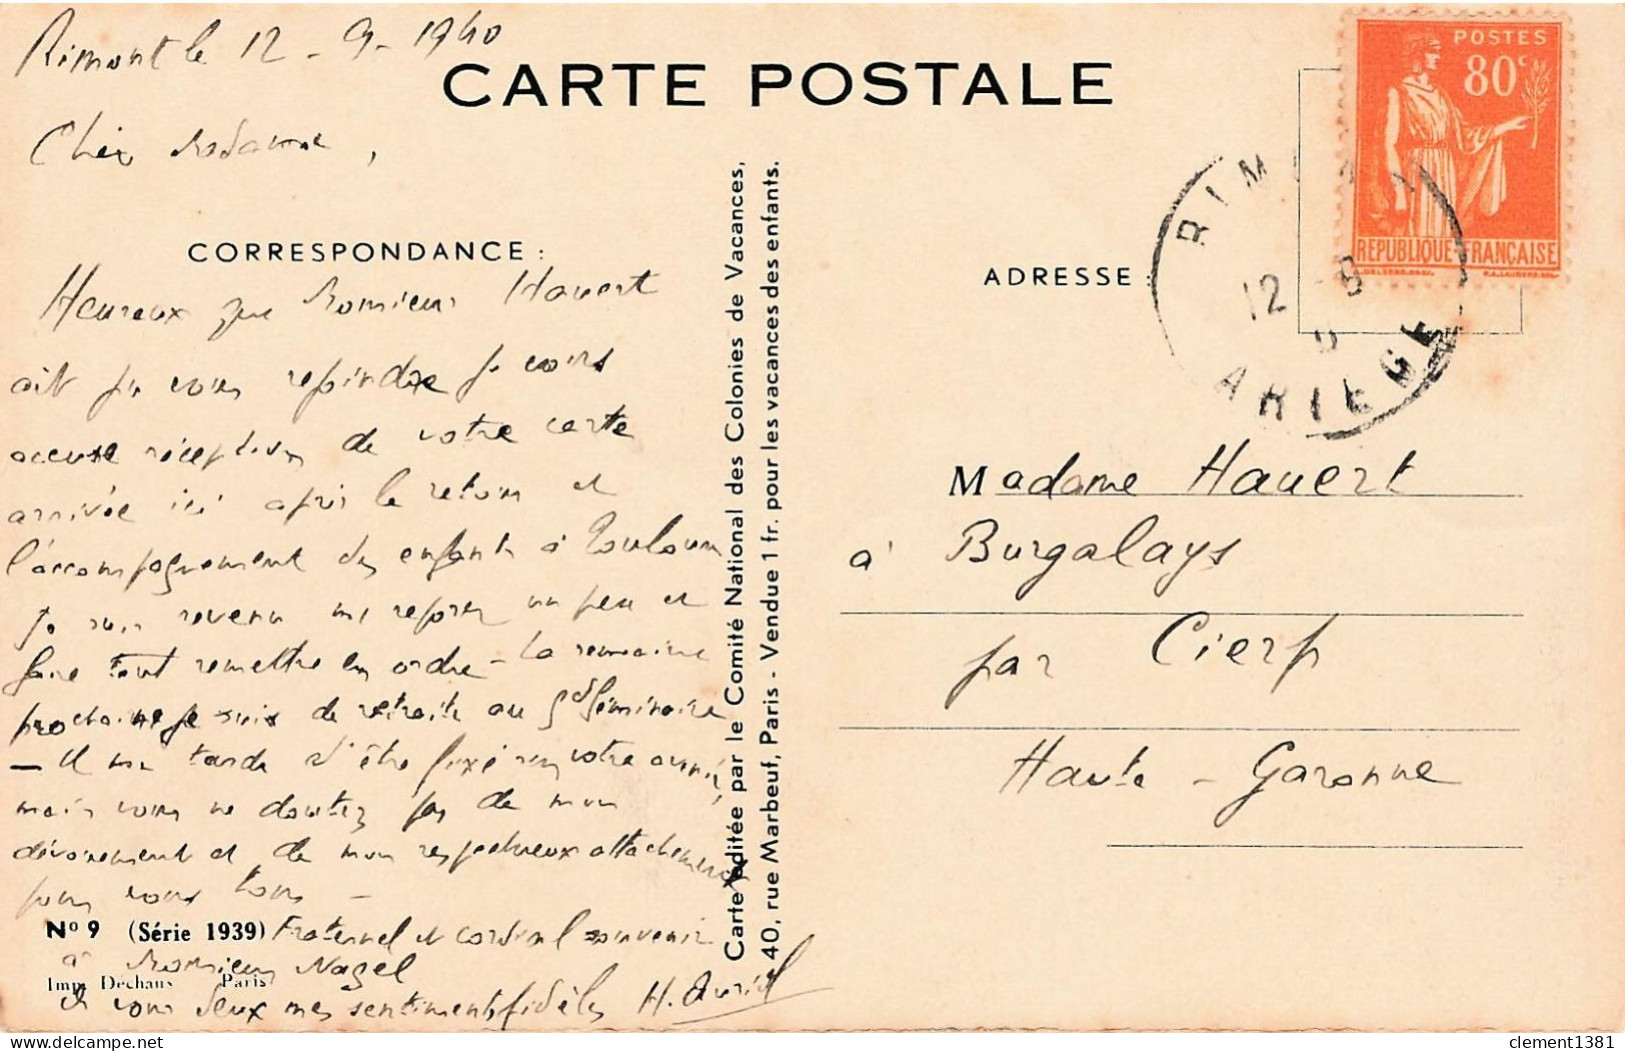 Rimont le 12 - 9 - 1940
CARTE POSTALE
Chère Madame,
CORRESPONDANCE :
Heureux que Monsieur Hauert
ait pu vous rejoindre je vous
accuse réception de votre carte
arrivée ici après le retour et
l'accompagnement des enfants à Toulouse
je suis revenu me reposer un peu et
faire tout remettre en ordre - La semaine
prochaine je suis de retraite au Gd Séminaire
- Il me tarde d'être fixé sur votre avenir,
mais vous ne doutez pas de mon
dévouement et de mon respectueux attachement
pour vous tous -
Fraternel et cordial souvenir
à Monsieur Nagel
et vous deux mes sentiments fidèles H. Auriol
No 9 (Série 1939)
Imp. Déchaux Paris
Carte éditée par le Comité National des Colonies de Vacances,
40, rue Marbeuf, Paris - Vendue 1 fr. pour les vacances des enfants.
POSTES
80c
REPUBLIQUE FRANÇAISE
RIMONT
12 - 9
ARIEGE
ADRESSE :
Madame Hauert
à Burgalays
par Cierp
Haute - Garonne
clement1381